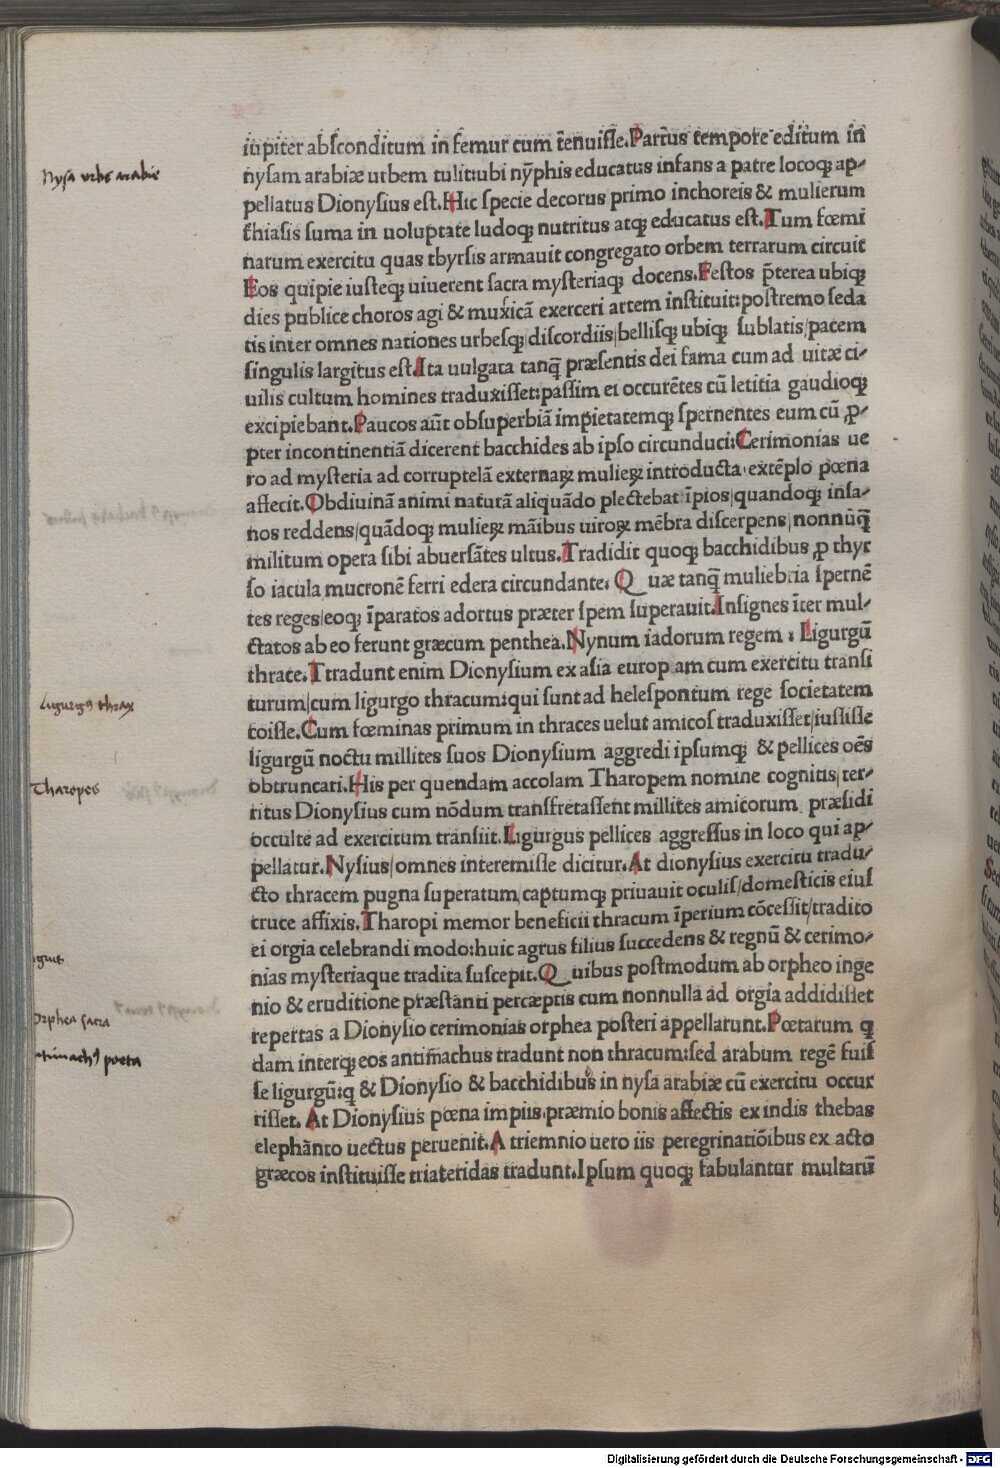 Nysa urbs arabie
iupiter abſconditum in femur cum tenuiſſe.Partus tempore editum in
nyſam arabiæ urbem tulit:ubi nȳphis educatus infans a patre locoqꝫ ap-
pellatus Dionyſius eſt.Hic ſpecie decorus primo inchoreis & mulierum
thiaſis ſuma in uoluptate ludoqꝫ nutritus atqꝫ educatus eſt.Tum fœmi
narum exercitu quas tbyrſis armauit congregato orbem terrarum circuit
Eos quipie iuſteqꝫ uiuerent ſacra myſteriaqꝫ docens.Feſtos p̄terea ubiqꝫ
dies publice choros agi & muxicā exerceri artem inſtituit:poſtremo ſeda
tis inter omnes nationes urbeſqꝫ/diſcordiis/belliſqꝫ ubiqꝫ ſublatis/pacem
ſingulis largitus eſt.Ita uulgata tanq̄ præſentis dei fama cum ad uitæ ci-
uilis cultum homines traduxiſſet:paſſim ei occurētes cū letitia gaudioqꝫ
excipiebant.Paucos aūt obſuperbiā impietatemqꝫ ſpernentes eum cū ꝓ-
pter incontinentiā dicerent bacchides ab ipſo circunduci:Cerimonias ue
ro ad myſteria ad corruptelā externaꝝ mulieꝝ introducta.extēplo pœna
affecit.Obdiuinā animi naturā aliquādo plectebat īpios/quandoqꝫ inſa-
nos reddens/quādoqꝫ mulieꝝ māibus uiroꝝ mēbra diſcerpens/nonnūq̄
militum opera ſibi abuerſātes ultus.Tradidit quoqꝫ bacchidibus ꝓ thyr
ſo iacula mucronē ferri edera circundante. Quæ tanq̄ muliebria ſpernē
tes reges/eoqꝫ īparatos adortus præter ſpem ſuperauit.Inſignes īter mul-
ctatos ab eo ferunt græcum penthea.Nynum iadorum regem : Ligurgū
thrace.Ttradunt enim Dionyſium ex aſia europ am cum exercitu tranſi
turum/cum ligurgo thracum:qui ſunt ad heleſpontum rege ſocietatem
toiſſe.Cum fœminas primum in thraces uelut amicoſ traduxiſſet/iuſſiſſe
ligurgū noctu millites ſuos Dionyſium aggredi ipſumqꝫ & pellices oēs
obtruncari.His per quendam accolam Tharopem nomine cognitis/ter-
ritus Dionyſius cum nōdum tranſfretaſſent millites amicorum præſidi
occulte ad exercitum tranſiit.Ligurgus pellices aggreſſus in loco qui ap-
pellatur.Nyſius/omnes interemiſſe dicitur.At dionyſius exercitu tradu-
cto thracem pugna ſuperatum/captumqꝫ priuauit oculiſ/domeſticis eiuſ
truce affixis.Tharopi memor beneficii thracum īperium cōceſſit/tradito
ei orgia celebrandi modo:huic agrus filius ſuccedens & regnū & cerimo-
nias myſteriaque tradita ſuſcepit.Quibus poſtmodum ab orpheo inge
nio & eruditione præſtanti percæptis cum nonnulla ad orgia addidiſſet
repertas a Dionyſio cerimonias orphea poſteri appellarunt.Pœtarum q
dam interqꝫ eos antim̄achus tradunt non thracum:ſed arabum regē fuiſ
ſe ligurgū:q & Dionyſio & bacchidibus in nyſa arabiæ cū exercitu occur
riſſet. At Dionyſius pœna impiis.præmio bonis affectis ex indis thebas
elephāto uectus peruenit.A triemnio uero iis peregrinatiōibus ex acto
græcos inſtituiſſe triateridas tradunt.Ipſum quoqꝫ fabulantur multarū
Ligurgꝰ thrax
Tharopes
Orphea sacra
poeta
Digitalisierung gefördert durch die Deutsche Forschungsgemeinschaft - DFG